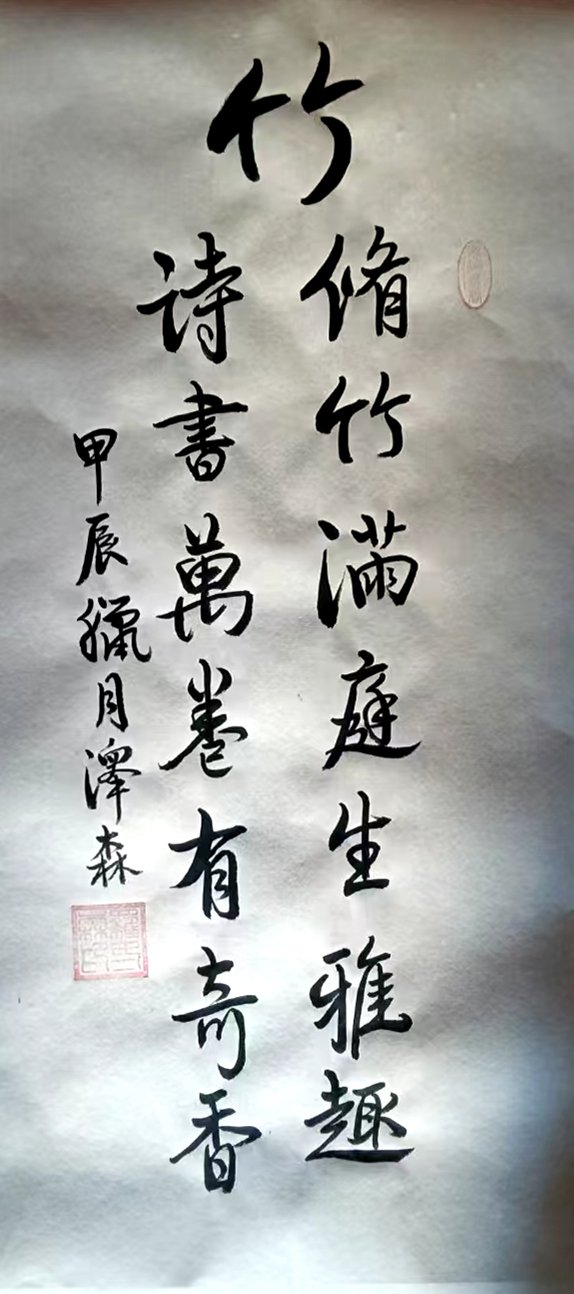 竹
脩竹滿庭生雅趣
詩書萬卷有奇香
甲辰臘月澤森